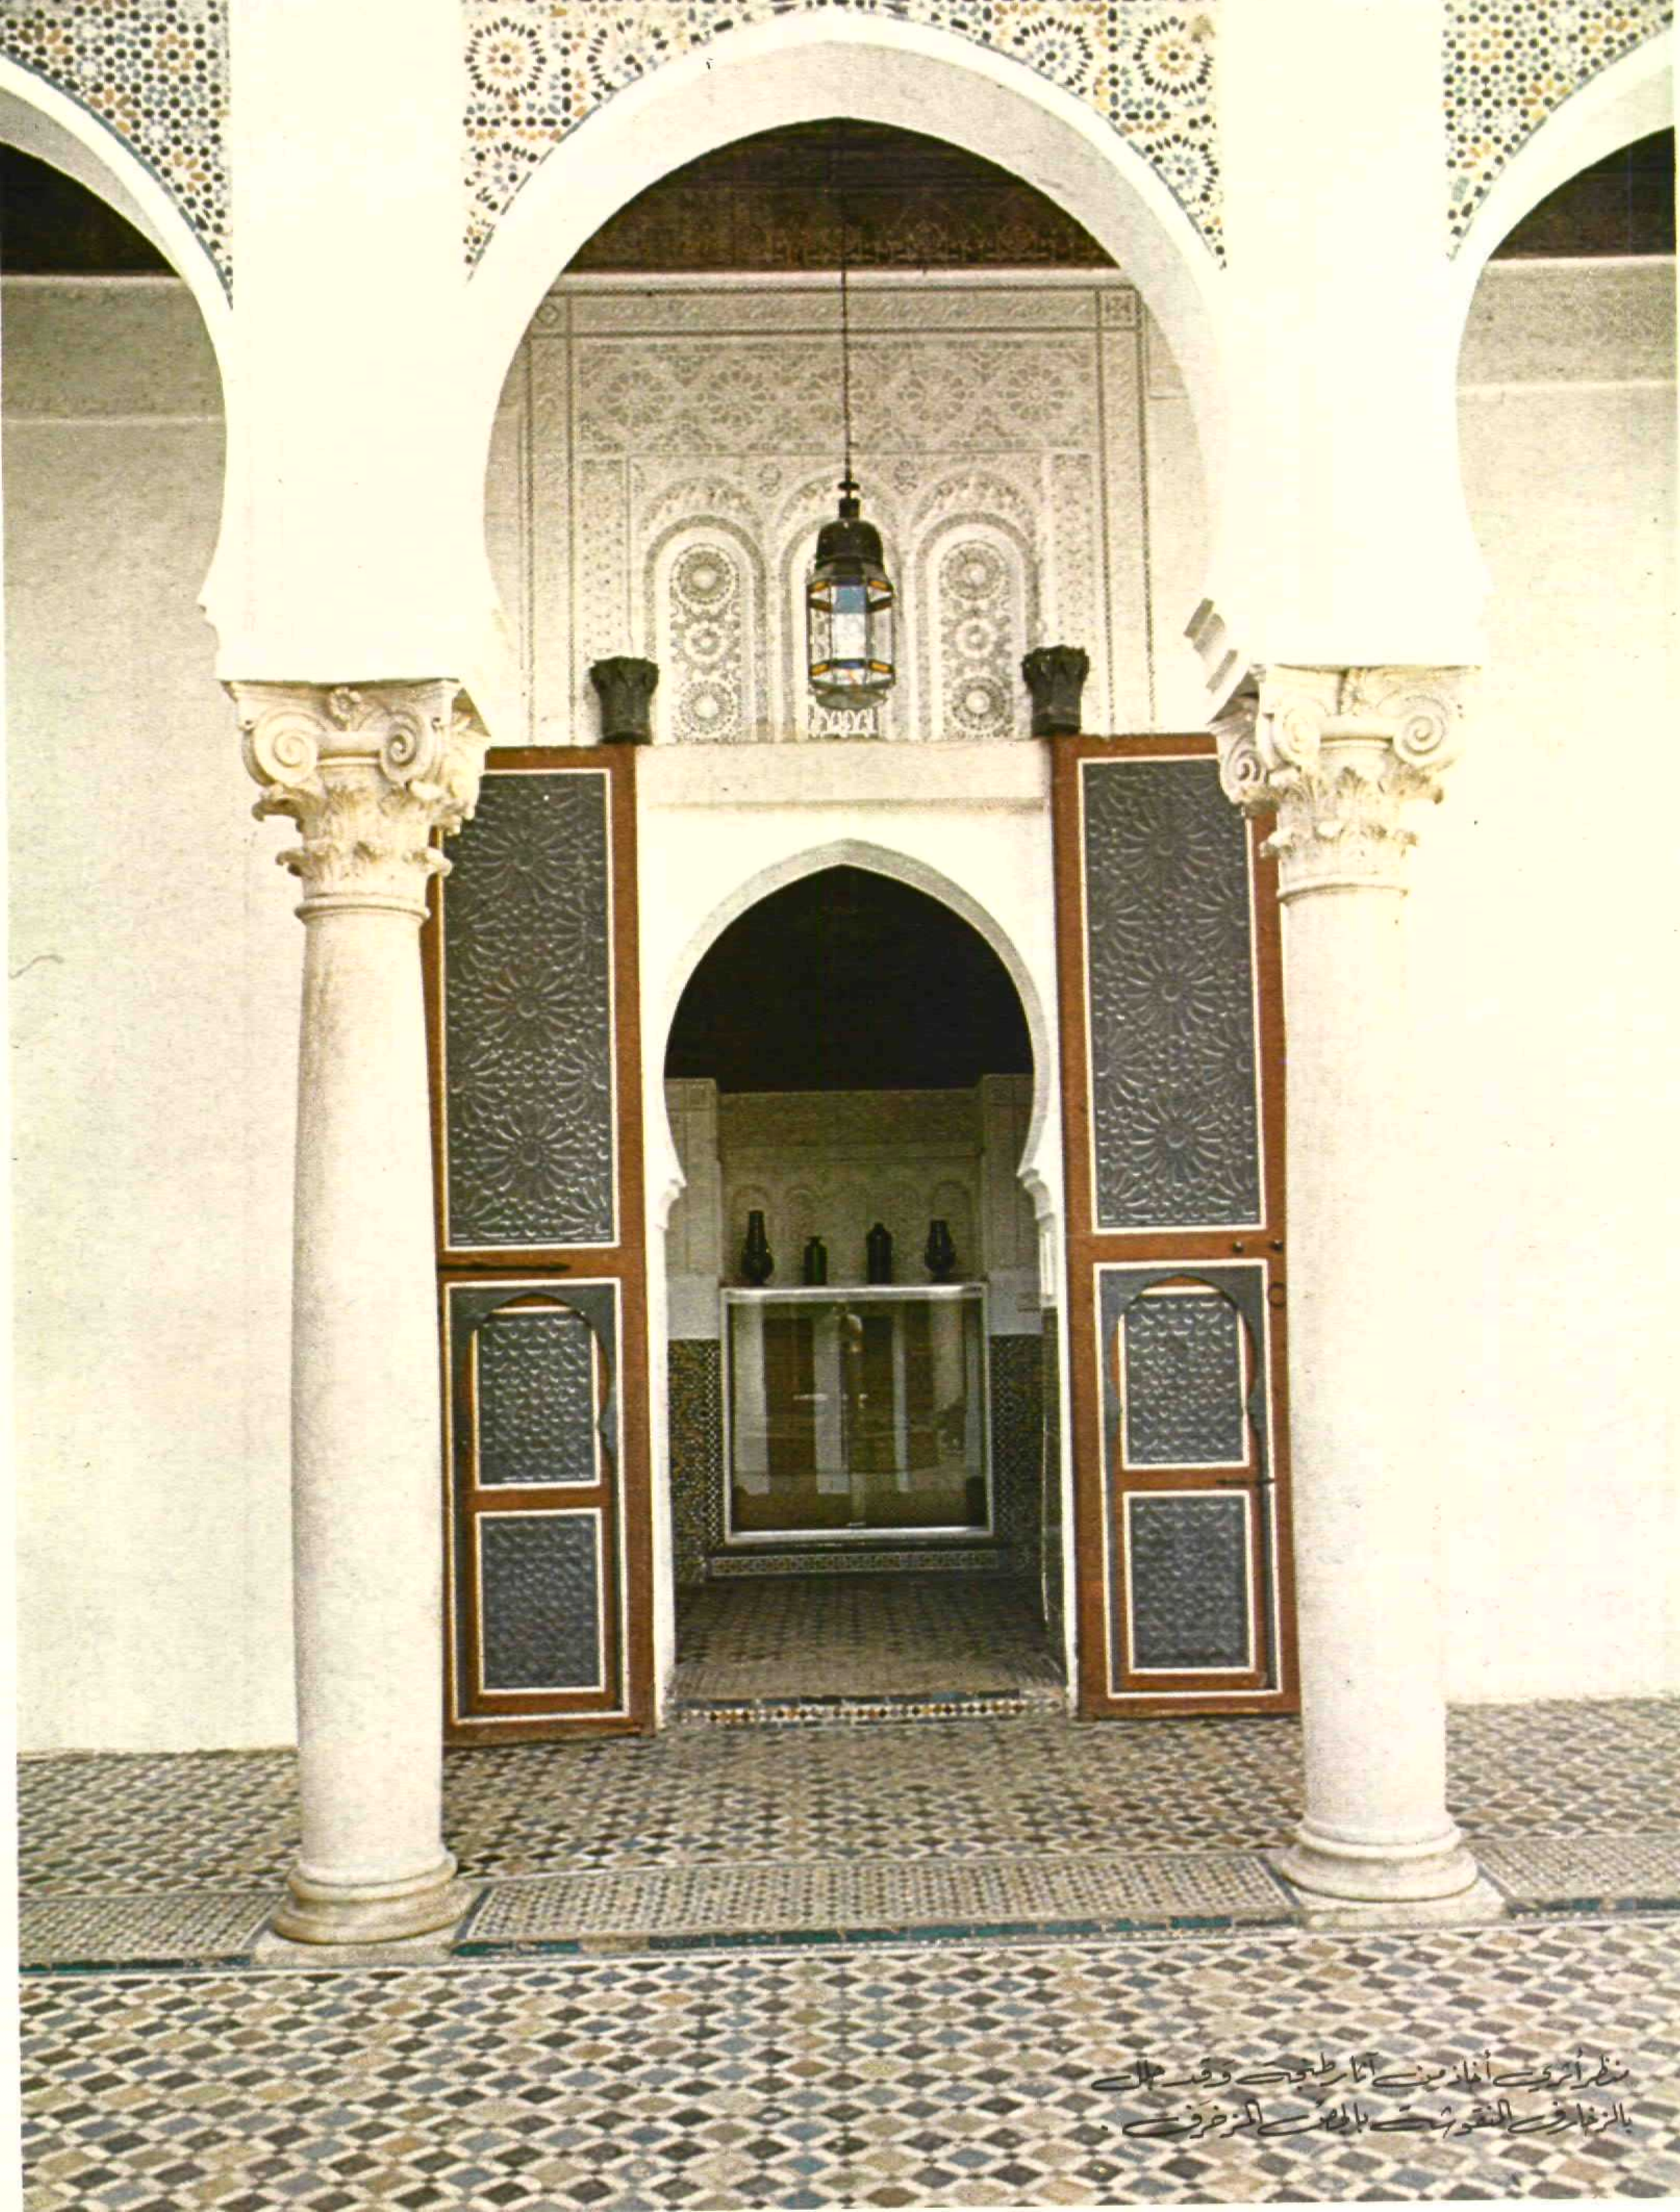 منظر أثري أخاذ من آثار طنجة وقد جلل
بالزخارف المنقوشة بالجص المزخرف .